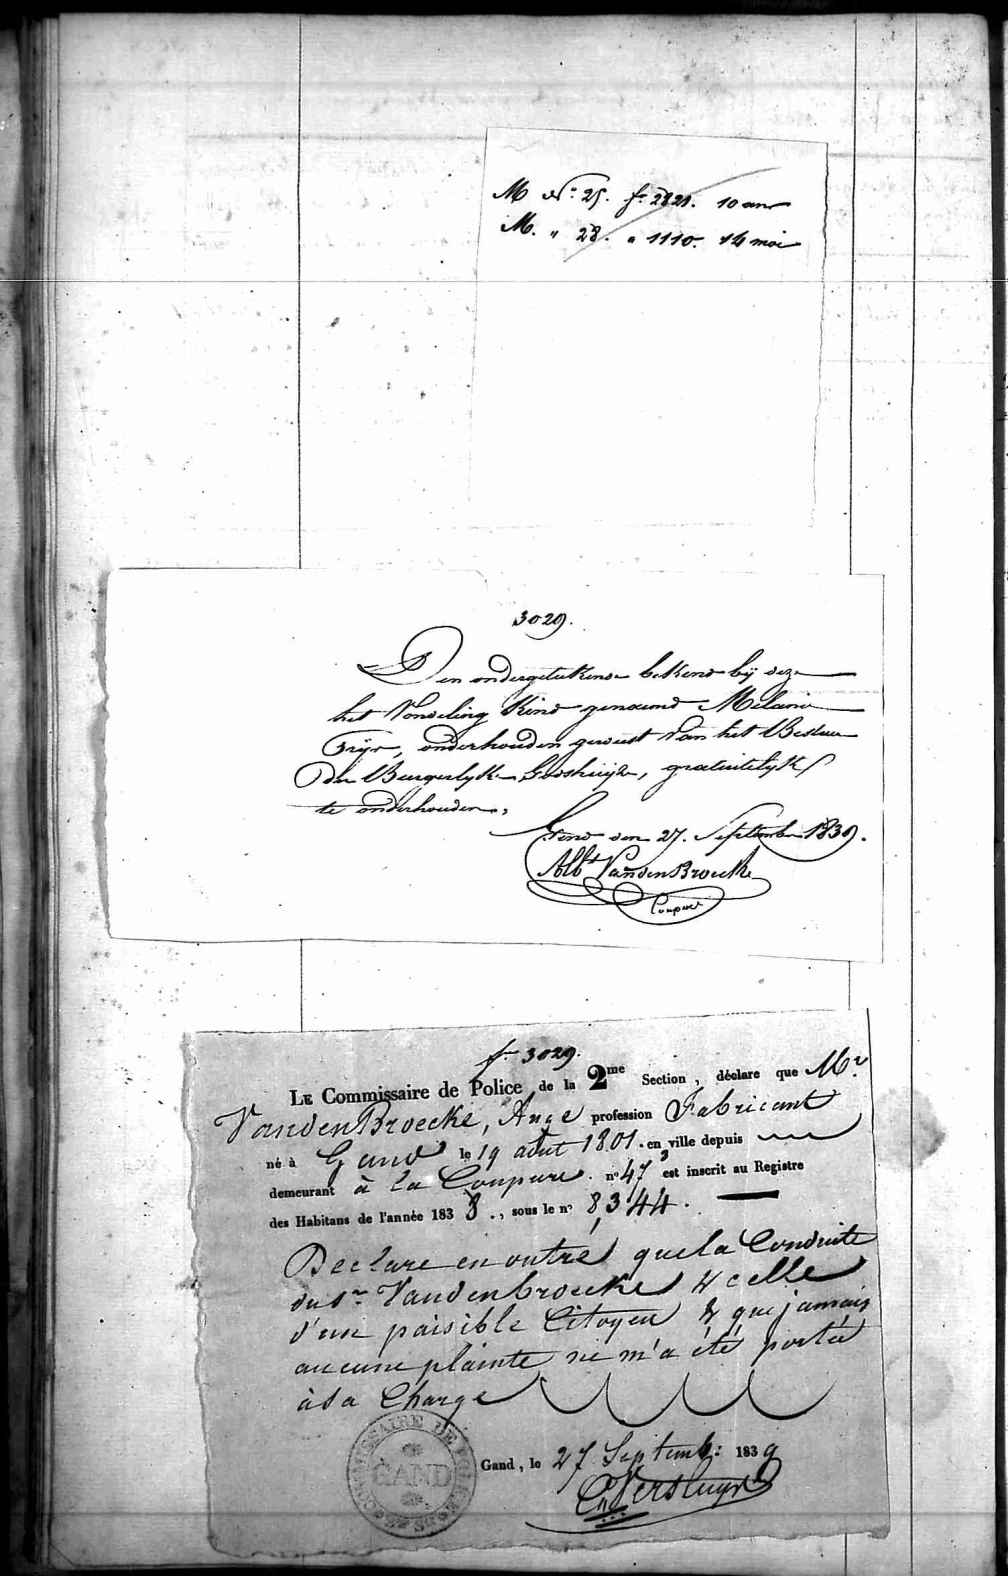 M N.° 25. f.° 2821. 10 ans
M. " 28. " 1110. 14 mois
3029.
Den ondergeteekende bekend bÿ deze
het Vondeling Kind genaemd Melanie
onderhouden geweest van het Bestuer
der Burgerlyke Godshuÿzen, gratuitelÿk
te onderhouden,
Gend den 27. September 1839.
Alb.t VandenBroecke
Coupure
f.° 3029.
LE Commissaire de Police de la 2me Section, déclare que Mr.
VandenBroecke, Ange profession Fabricant
né à Gand le 19 août 1801. en ville depuis
demeurant à la Coupure. n° 47 est inscrit au Registre
des Habitans de l'année 1838., sous le n° 8,344.
Declare en outre que la Conduite
du Sr. Vandenbroecke & celle
d'un paisible Citoyen & que jamais
aucune plainte ne m'a été portée
à sa Charge
COMMISSAIRE DE POLICE
GAND
Gand, le 27 Septemb: 1839
Versluys